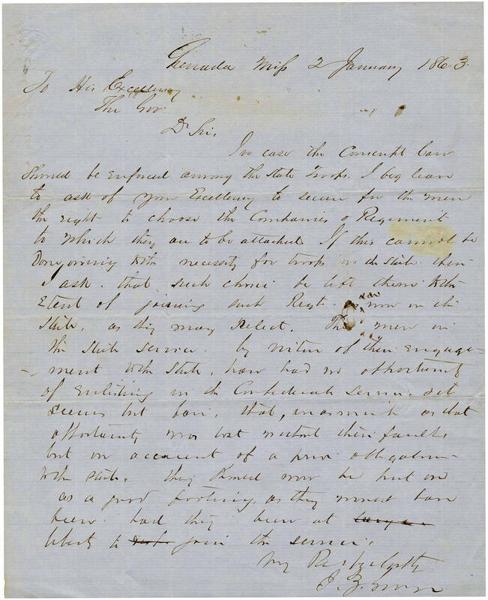 Grenada Miss 2 January 1863.
To His Excellency
The Gov
Dr Sir,
In case the Conscript law
should be enforced among the State troops. I beg leave
to ask of your Excellency to secure for the men
the right to choose the Companies & Regiment
to which they are to be attached. If this cannot be
Done owing to the necessity for troops in the State then
I ask that such choice be left them to the
Extent of joining such Regts. now in the
State, as they may select. The men in
the State service by virtue of their engage-
ment to the State, have had no opportunity
of enlisting in the Confederate service. It
seems but fair, that, inasmuch as that
opportunity was lost without their fault
but on account of a prior obligation
to the State, they should now be put on
as a good footing, as they would have
been had they been at
liberty to join the service.
Very Respectfully